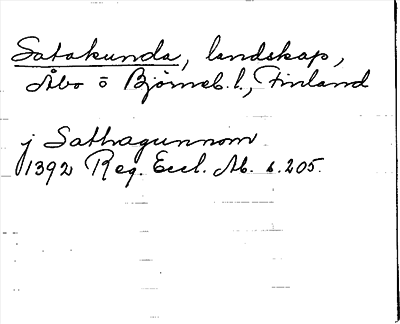 Satakunda, landskap,
Åbo o Björneb. l., Finland
j Sathagunnom
1392 Reg. Eccl. Ab. s. 205.